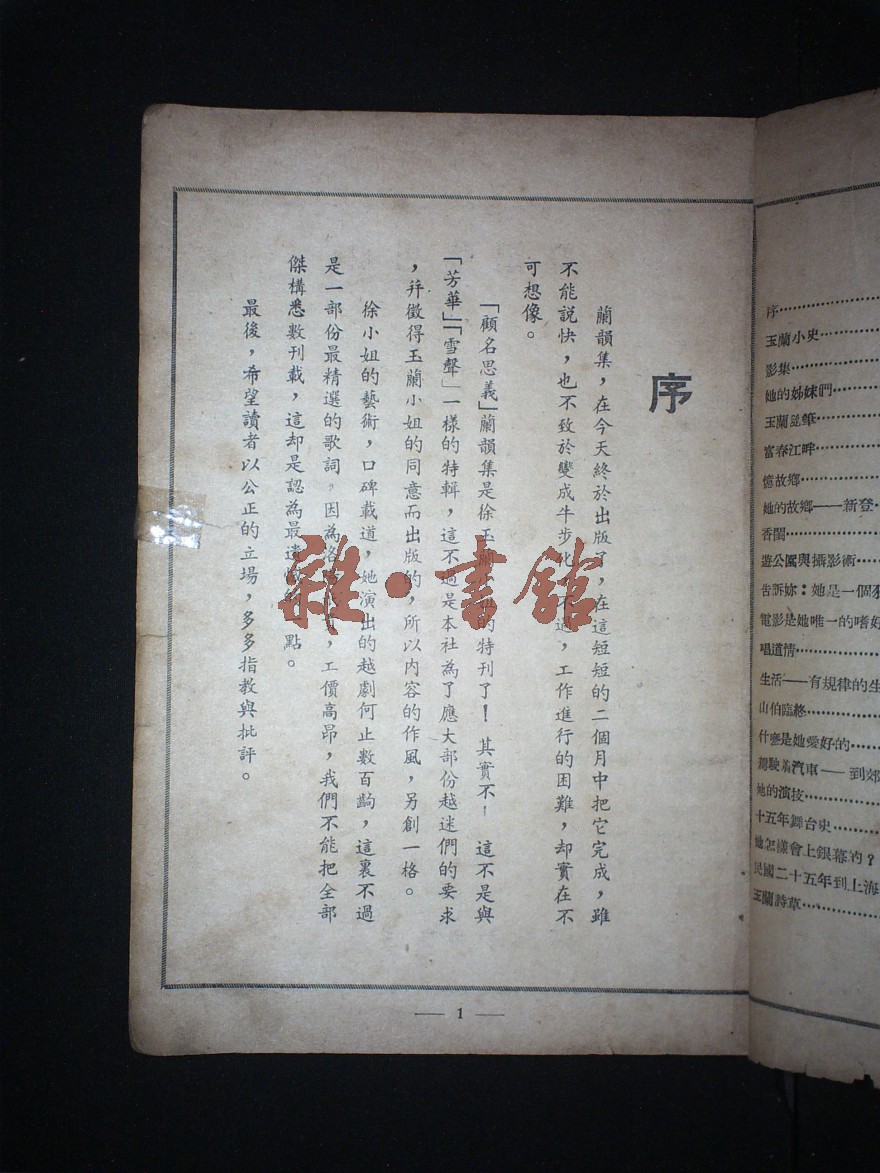 序
蘭韻集，在今天終於出版了，在這短短的二個月中把它完成，雖
不能說快，也不致於變成牛步化，不過，工作進行的困難，却實在不
可想像。
「顧名思義」蘭韻集是徐玉蘭的特刊了！其實不！這不是與
「芳華」「雪聲」一樣的特輯，這不過是本社為了應大部份越迷們的要求
，幷徵得玉蘭小姐的同意而出版的，所以內容的作風，另創一格。
徐小姐的藝術，口碑載道，她演出的越劇何止數百齣，這裏不過
是一部份最精選的歌詞。因為，工價高昂，我們不能把全部
傑構悉數刊載，這却是認為最遺點。
最後，希望讀者以公正的立場，多多指教與批評。
— 1 —
雜·書館
序
玉蘭小史
影集
她的姊妹們
玉蘭
富春江畔
憶故鄉
她的故鄉——新登
香閨
遊公園與攝影術
告訴妳：她是一個
電影是她唯一的嗜好
唱道情
生活——有規律的生
山伯臨終
什麼是她愛好的
駕駛着汽車——到郊
她的演技
十五年舞台史
她怎樣會上銀幕的？
民國二十五年到上海
玉蘭詩草